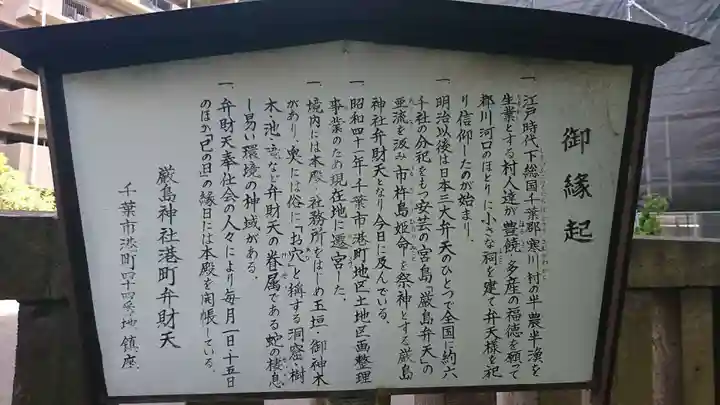 御縁起
一、江戸時代、下総国千葉郡寒川村の半農半漁を
生業とする村人達が豊饒・多産の福徳を願って
都川河口のほとりに小さな祠を建て弁天様を祀
り信仰したのが始まり。
一、明治以後は日本三大弁天のひとつで全国に約六
千社の分祀をもつ安芸の宮島「厳島弁天」の
亜流を汲み市杵島姫命を祭神とする厳島
神社弁財天となり今日に及んでいる。
一、昭和四十一年、千葉市港町地区土地区画整理
事業のため現在地に遷宮した。
一、境内には本殿・社務所をはじめ玉垣・御神木
があり、奥には俗に「お穴」と称する洞窟・樹
木・池・滝など弁財天の眷属である蛇の棲息
し易い環境の神域がある。
一、弁財天奉仕会の人々により毎月一日十五日
のほか「巳の日」の縁日には本殿を開帳している。
厳島神社港町弁財天
千葉市港町四十四番地鎮座